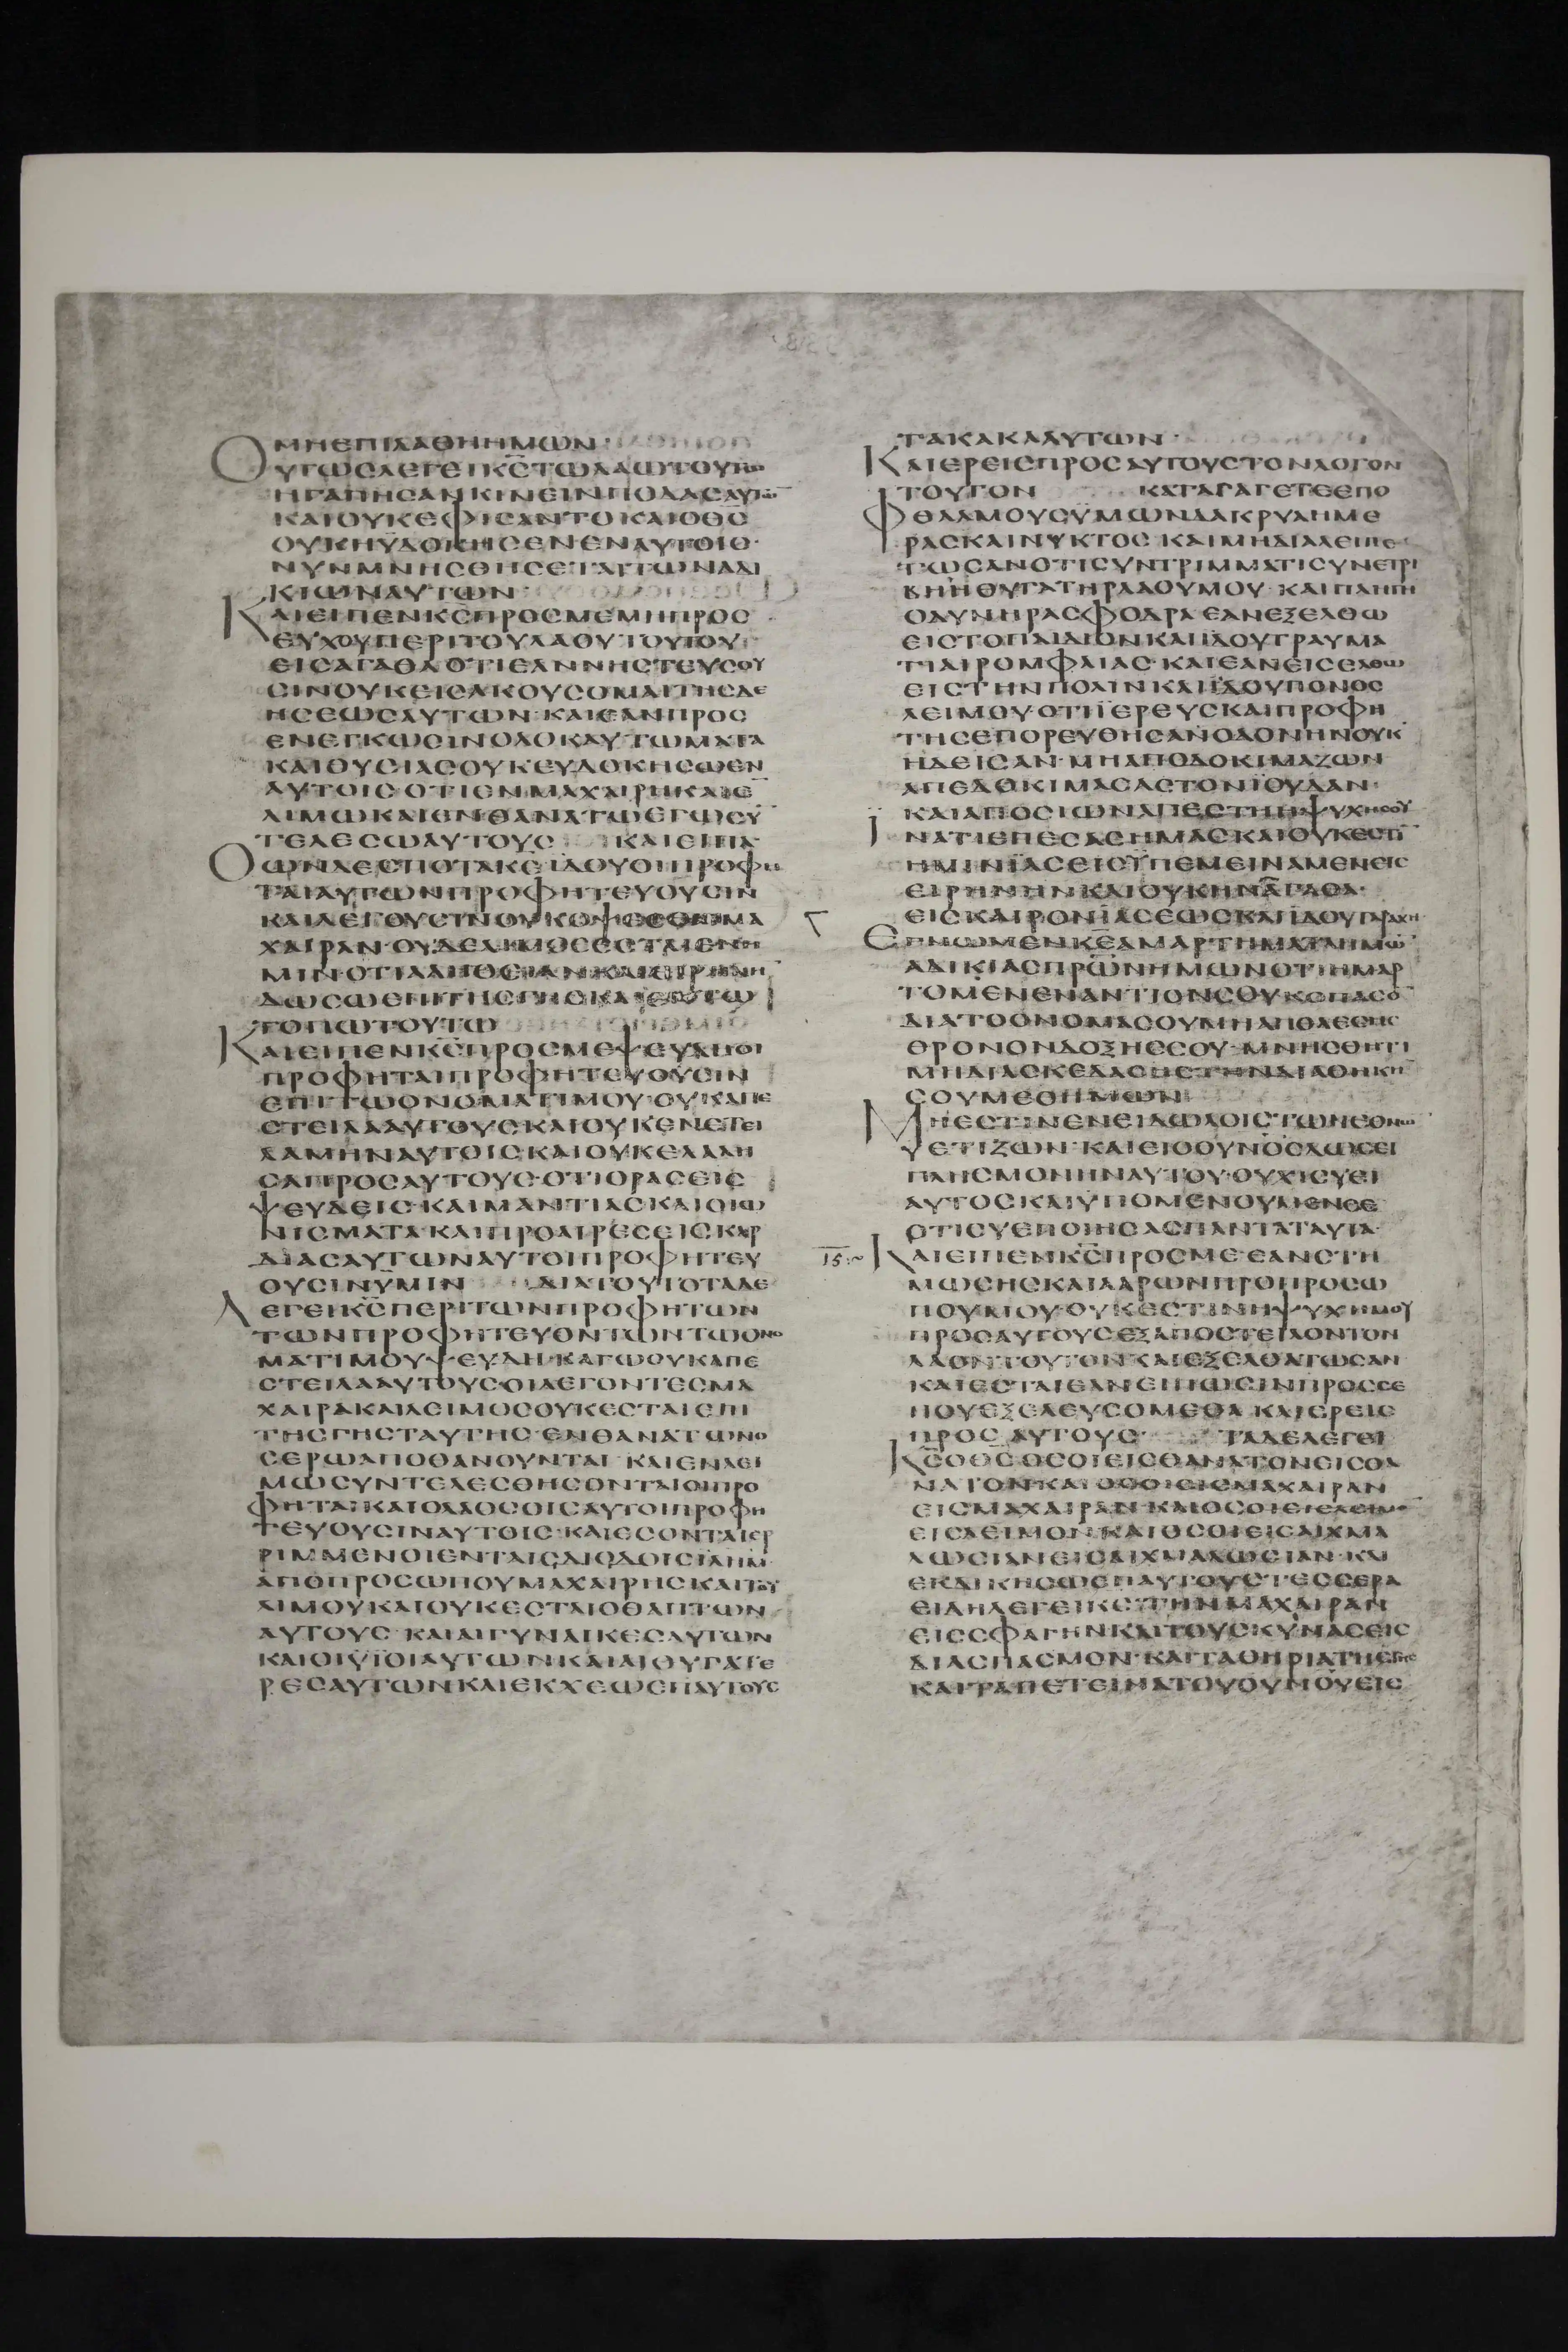 ΜΗΕΠΙΛΑΘΗΗΜΩΝ·
ΟΥΤΩСΛΕΓΕΙΚСΤΩΛΑΩΤΟΥΤΩ
ΗΓΑΠΗСΑΝΚΙΝΕΙΝΠΟΔΑСΑΥΤΩ
ΚΑΙΟΥΚΕΦΙСΑΝΤΟΚΑΙΟΘС
ΟΥΚΗΥΔΟΚΗСΕΝΕΝΑΥΤΟΙС·
ΝΥΝΜΝΗСΘΗСΕΤΑΙΤΩΝΑΔΙ
ΚΙΩΝΑΥΤΩΝ
ΚΑΙΕΙΠΕΝΚСΠΡΟСΜΕΜΗΠΡΟС
ΕΥΧΟΥΠΕΡΙΤΟΥΛΑΟΥΤΟΥΤΟΥ
ΕΙСΑΓΑΘΑΟΤΙΕΑΝΝΗСΤΕΥСΟΥ
СΙΝΟΥΚΕΙСΑΚΟΥСΟΜΑΙΤΗСΔΕ
ΗСΕΩСΑΥΤΩΝ·ΚΑΙΕΑΝΠΡΟС
ΕΝΕΓΚΩСΙΝΟΛΟΚΑΥΤΩΜΑΤΑ
ΚΑΙΘΥСΙΑСΟΥΚΕΥΔΟΚΗСΩΕΝ
ΑΥΤΟΙСΟΤΙΕΝΜΑΧΑΙΡΗΚΑΙΕ
ΛΙΜΩΚΑΙΕΝΘΑΝΑΤΩΕΓΩСΥ
ΤΕΛΕСΩΑΥΤΟΥС ΚΑΙΕΙΠΑ
ΟΩΝΔΕСΠΟΤΑΚΕΙΔΟΥΟΙΠΡΟΦΗ
ΤΑΙΑΥΤΩΝΠΡΟΦΗΤΕΥΟΥСΙΝ
ΚΑΙΛΕΓΟΥСΙΝΟΥΚΟΨΕСΘΕΜΑ
ΧΑΙΡΑΝ·ΟΥΔΕΛΙΜΟСΕСΤΑΙΕΝΗ
ΜΙΝΟΤΙΑΛΗΘΕΙΑΝΚΑΙΕΙΡΗΝΗ
ΔΩСΩΕΠΙΤΗСΓΗСΚΑΙΕΝΤΩ
ΤΟΠΩΤΟΥΤΩ
ΚΑΙΕΙΠΕΝΚСΠΡΟСΜΕΨΕΥΔΗΟΙ
ΠΡΟΦΗΤΑΙΠΡΟΦΗΤΕΥΟΥСΙΝ
ΕΠΙΤΩΟΝΟΜΑΤΙΜΟΥ·ΟΥΚΑΠΕ
СΤΕΙΛΑΑΥΤΟΥСΚΑΙΟΥΚΕΝΕΤΕΙ
ΛΑΜΗΝΑΥΤΟΙСΚΑΙΟΥΚΕΛΑΛΗ
СΑΠΡΟСΑΥΤΟΥС·ΟΤΙΟΡΑСΕΙС
ΨΕΥΔΕΙС·ΚΑΙΜΑΝΤΙΑСΚΑΙΟΙΩ
ΝΙСΜΑΤΑ·ΚΑΙΠΡΟΑΙΡΕСΕΙСΚΑΡ
ΔΙΑСΑΥΤΩΝΑΥΤΟΙΠΡΟΦΗΤΕΥ
ΟΥСΙΝΥΜΙΝ ΔΙΑΤΟΥΤΟΤΑΔΕ
ΛΕΓΕΙΚСΠΕΡΙΤΩΝΠΡΟΦΗΤΩΝ
ΤΩΝΠΡΟΦΗΤΕΥΟΝΤΩΝΤΩΟΝΟ
ΜΑΤΙΜΟΥΨΕΥΔΗ·ΚΑΓΩΟΥΚΑΠΕ
СΤΕΙΛΑΑΥΤΟΥС·ΟΙΛΕΓΟΝΤΕСΜΑ
ΧΑΙΡΑΚΑΙΛΕΙΜΟСΟΥΚΕСΤΑΙΕΠΙ
ΤΗСΓΗСΤΑΥΤΗС·ΕΝΘΑΝΑΤΩΝΟ
СΕΡΩΑΠΟΘΑΝΟΥΝΤΑΙ ΚΑΙΕΝΛΕΙ
ΜΩСΥΝΤΕΛΕСΘΗСΟΝΤΑΙΟΙΠΡΟ
ΦΗΤΑΙ·ΚΑΙΟΛΑΟСΟΙСΑΥΤΟΙΠΡΟΦΗ
ΤΕΥΟΥСΙΝΑΥΤΟΙС·ΚΑΙΕСΟΝΤΑΙΕΡ
ΡΙΜΜΕΝΟΙΕΝΤΑΙСΔΙΟΔΟΙСΙΛΗΜ
ΑΠΟΠΡΟСΩΠΟΥΜΑΧΑΙΡΗСΚΑΙΤΟΥ
ΛΙΜΟΥΚΑΙΟΥΚΕСΤΑΙΟΘΑΠΤΩΝ
ΑΥΤΟΥС·ΚΑΙΑΙΓΥΝΑΙΚΕСΑΥΤΩΝ
ΚΑΙΟΙΥΙΟΙΑΥΤΩΝΚΑΙΑΙΘΥΓΑΤΕ
ΡΕСΑΥΤΩΝΚΑΙΕΚΧΕΩΕΠΑΥΤΟΥС
ΤΑΚΑΚΑΑΥΤΩΝ·
ΚΑΙΕΡΕΙСΠΡΟСΑΥΤΟΥСΤΟΝΛΟΓΟΝ
ΤΟΥΤΟΝ ΚΑΤΑΓΑΓΕΤΕΕΠΟ
ΦΘΑΛΜΟΥСΥΜΩΝΔΑΚΡΥΑΗΜΕ
ΡΑСΚΑΙΝΥΚΤΟС·ΚΑΙΜΗΔΙΑΛΕΙΠΕ
ΤΩСΑΝΟΤΙСΥΝΤΡΙΜΜΑΤΙСΥΝΕΤΡΙ
ΒΗΗΘΥΓΑΤΗΡΛΑΟΥΜΟΥ·ΚΑΙΠΛΗΓΗ
ΟΔΥΝΗΡΑСΦΟΔΡΑ·ΕΑΝΕΞΕΛΘΩ
ΕΙСΤΟΠΑΙΔΙΟΝΚΑΙΙΔΟΥΤΡΑΥΜΑ
ΤΙΑΙΡΟΜΦΑΙΑС·ΚΑΙΕΑΝΕΙСΕΛΘΩ
ΕΙСΤΗΝΠΟΛΙΝΚΑΙΙΔΟΥΠΟΝΟС
ΛΕΙΜΟΥ·ΟΤΙΙΕΡΕΥСΚΑΙΠΡΟΦΗ
ΤΗСΕΠΟΡΕΥΘΗСΑΝΟΔΟΝΗΝΟΥΚ
ΗΔΕΙСΑΝ·ΜΗΑΠΟΔΟΚΙΜΑΖΩΝ
ΑΠΕΔΟΚΙΜΑСΑСΤΟΝΙΟΥΔΑΝ·
ΚΑΙΑΠΟСΙΩΝΑΠΕСΤΗΗΨΥΧΗСΟΥ
ΙΝΑΤΙΕΠΕСΑСΗΜΑСΚΑΙΟΥΚΕСΤΙ
ΗΜΙΝΙΑСΕΙСΥΠΕΜΕΙΝΑΜΕΝΕΙС
ΕΙΡΗΝΗΝΚΑΙΟΥΚΗΝΑΓΑΘΑ·
ΕΙСΚΑΙΡΟΝΙΑСΕΩСΚΑΙΙΔΟΥΤΑΡΑΧΗ
ΕΓΝΩΜΕΝΚΕΑΜΑΡΤΗΜΑΤΑΗΜΩ
ΑΔΙΚΙΑСΠΡΩΝΗΜΩΝΟΤΙΗΜΑΡ
ΤΟΜΕΝΕΝΑΝΤΙΟΝСΟΥΚΟΠΑСΟ
ΔΙΑΤΟΟΝΟΜΑСΟΥΜΗΑΠΟΛΕСΗС
ΘΡΟΝΟΝΔΟΞΗСΣΟΥ·ΜΝΗСΘΗΤΙ
ΜΗΔΙΑСΚΕΔΑСΗСΤΗΝΔΙΑΘΗΚΗ
СΟΥΜΕΘΗΜΩΝ
ΜΗΕСΤΙΝΕΝΕΙΔΩΛΟΙСΤΩΝΕΘΝΩ
ΥΕΤΙΖΩΝ·ΚΑΙΕΙΟΟΥΝΟСΔΩСΕΙ
ΠΛΗСΜΟΝΗΝΑΥΤΟΥ·ΟΥΧΙСΥΕΙ
ΑΥΤΟСΚΑΙΥΠΟΜΕΝΟΥΜΕΝСΕ
ΟΤΙСΥΕΠΟΙΗСΑСΠΑΝΤΑΤΑΥΤΑ·
ΙΕ ΚΑΙΕΙΠΕΝΚСΠΡΟСΜΕ·ΕΑΝСΤΗ
ΜΩСΗСΚΑΙΑΑΡΩΝΠΡΟΠΡΟСΩ
ΠΟΥΜΟΥ·ΟΥΚΕСΤΙΝΗΨΥΧΗΜΟΥ
ΠΡΟСΑΥΤΟΥСΕΞΑΠΟСΤΕΙΛΟΝΤΟΝ
ΛΑΟΝΤΟΥΤΟΝΚΑΙΕΞΕΛΘΑΤΩСΑΝ
ΚΑΙΕСΤΑΙΕΑΝΕΙΠΩСΙΝΠΡΟССΕ
ΠΟΥΕΞΕΛΕΥСΟΜΕΘΑ·ΚΑΙΕΡΕΙС
ΠΡΟСΑΥΤΟΥС ΤΑΔΕΛΕΓΕΙ
ΚСΟΘСΟСΟΙΕΙСΘΑΝΑΤΟΝΕΙСΘΑ
ΝΑΤΟΝ·ΚΑΙΟСΟΙΕΙСΜΑΧΑΙΡΑΝ
ΕΙСΜΑΧΑΙΡΑΝ·ΚΑΙΟСΟΙΕΙСΛΕΙΜΟ
ΕΙСΛΕΙΜΟΝ·ΚΑΙΟСΟΙΕΙСΑΙΧΜΑ
ΛΩСΙΑΝΕΙСΑΙΧΜΑΛΩСΙΑΝ·ΚΑΙ
ΕΚΔΙΚΗСΩΕΠΑΥΤΟΥСΤΕССΕΡΑ
ΕΙΔΗΛΕΓΕΙΚС·ΤΗΝΜΑΧΑΙΡΑΝ
ΕΙССΦΑΓΗΝΚΑΙΤΟΥСΚΥΝΑСΕΙС
ΔΙΑСΠΑСΜΟΝ·ΚΑΙΤΑΘΗΡΙΑΤΗСΓΗС
ΚΑΙΤΑΠΕΤΕΙΝΑΤΟΥΟΥΝΟΥΕΙС